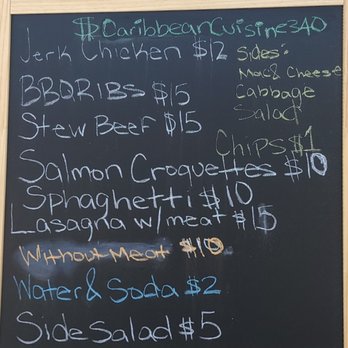 $CaribbeanCuisine340
Jerk Chicken $12
Sides:
Mac & Cheese
Cabbage
Salad
BBQ RIBS $15
Stew Beef $15
Chips $1
Salmon Croquettes $10
Sphaghetti $10
Lasagna w/meat $15
Without Meat $10
Water & Soda $2
Side Salad $5